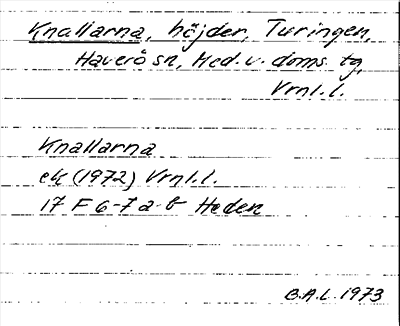 Knallarna, höjder, Turingen,
Haverö sn, Med. v. doms. tg,
Vrnl. l.
Knallarna
ek (1972) Vrnl. l.
17 F 6-7 a-b Heden
B.A.L. 1973